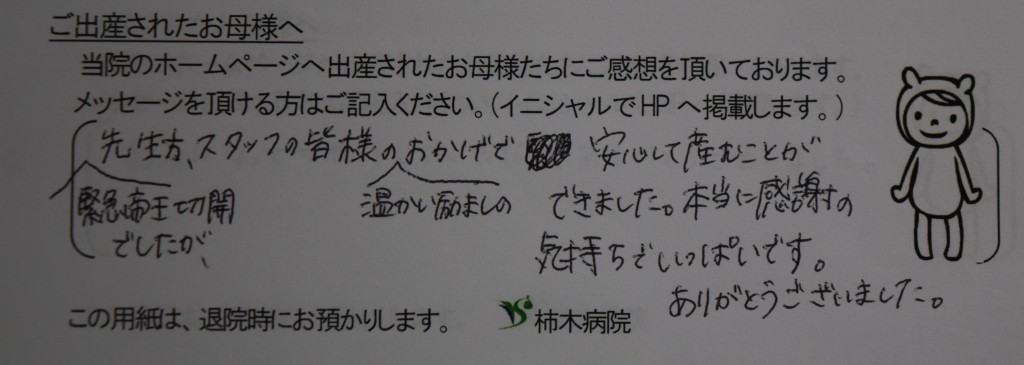 ご出産されたお母様へ
当院のホームページへ出産されたお母様たちにご感想を頂いております。
メッセージを頂ける方はご記入ください。（イニシャルでHPへ掲載します。）
先生方、スタッフの皆様のおかげで 安心して産むことが
緊急帝王切開 温かい励ましの できました。本当に感謝の
でしたが、 気持ちでいっぱいです。
ありがとうございました。
この用紙は、退院時にお預かりします。 柿木病院